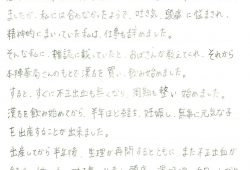 ましたが、私には合わなかったようで、吐き気、頭痛に悩まされ、
精神的にまいっていた私は、仕事も辞めました。
そんな私に、雑誌に載っていたと、おばさんが教えてくれ、それから
本陣薬局さんのもとで漢方を買い、飲み始めました。
すると、すぐに不正出血も無くなり、周期も整い始めました。
漢方を飲み始めてから、半年ほど経ち、妊娠し、無事に元気な子
を出産することが出来ました。
出産してから半年後、生理が再開するとともに、また不正出血が